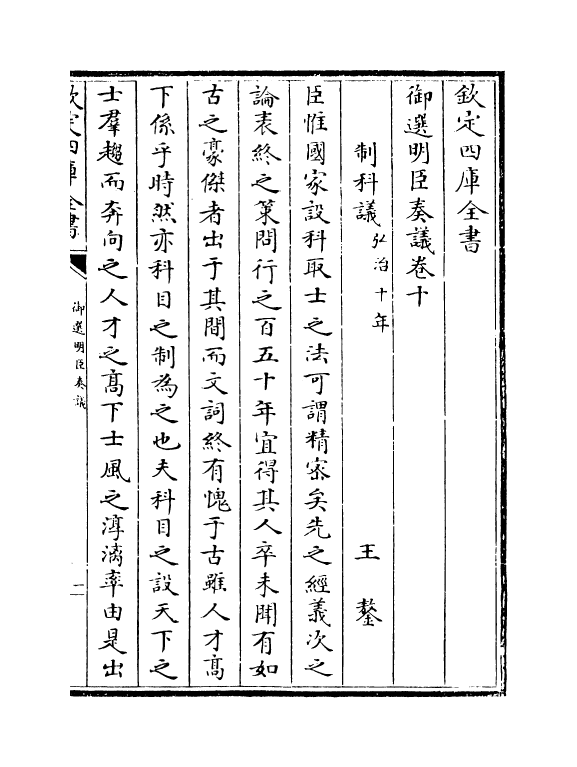 欽定四庫全書
御選明臣奏議卷十
制科議弘治十年　王鏊
臣惟國家設科取士之法可謂精宻矣先之經義次之
論表終之策問行之百五十年宜得其人卒未聞有如
古之豪傑者出于其間而文詞終有愧于古雖人才髙
下係乎時然亦科目之制為之也夫科目之設天下之
士羣趨而奔向之人才之髙下士風之淳漓率由是出
欽定四庫全書
御選明臣奏議